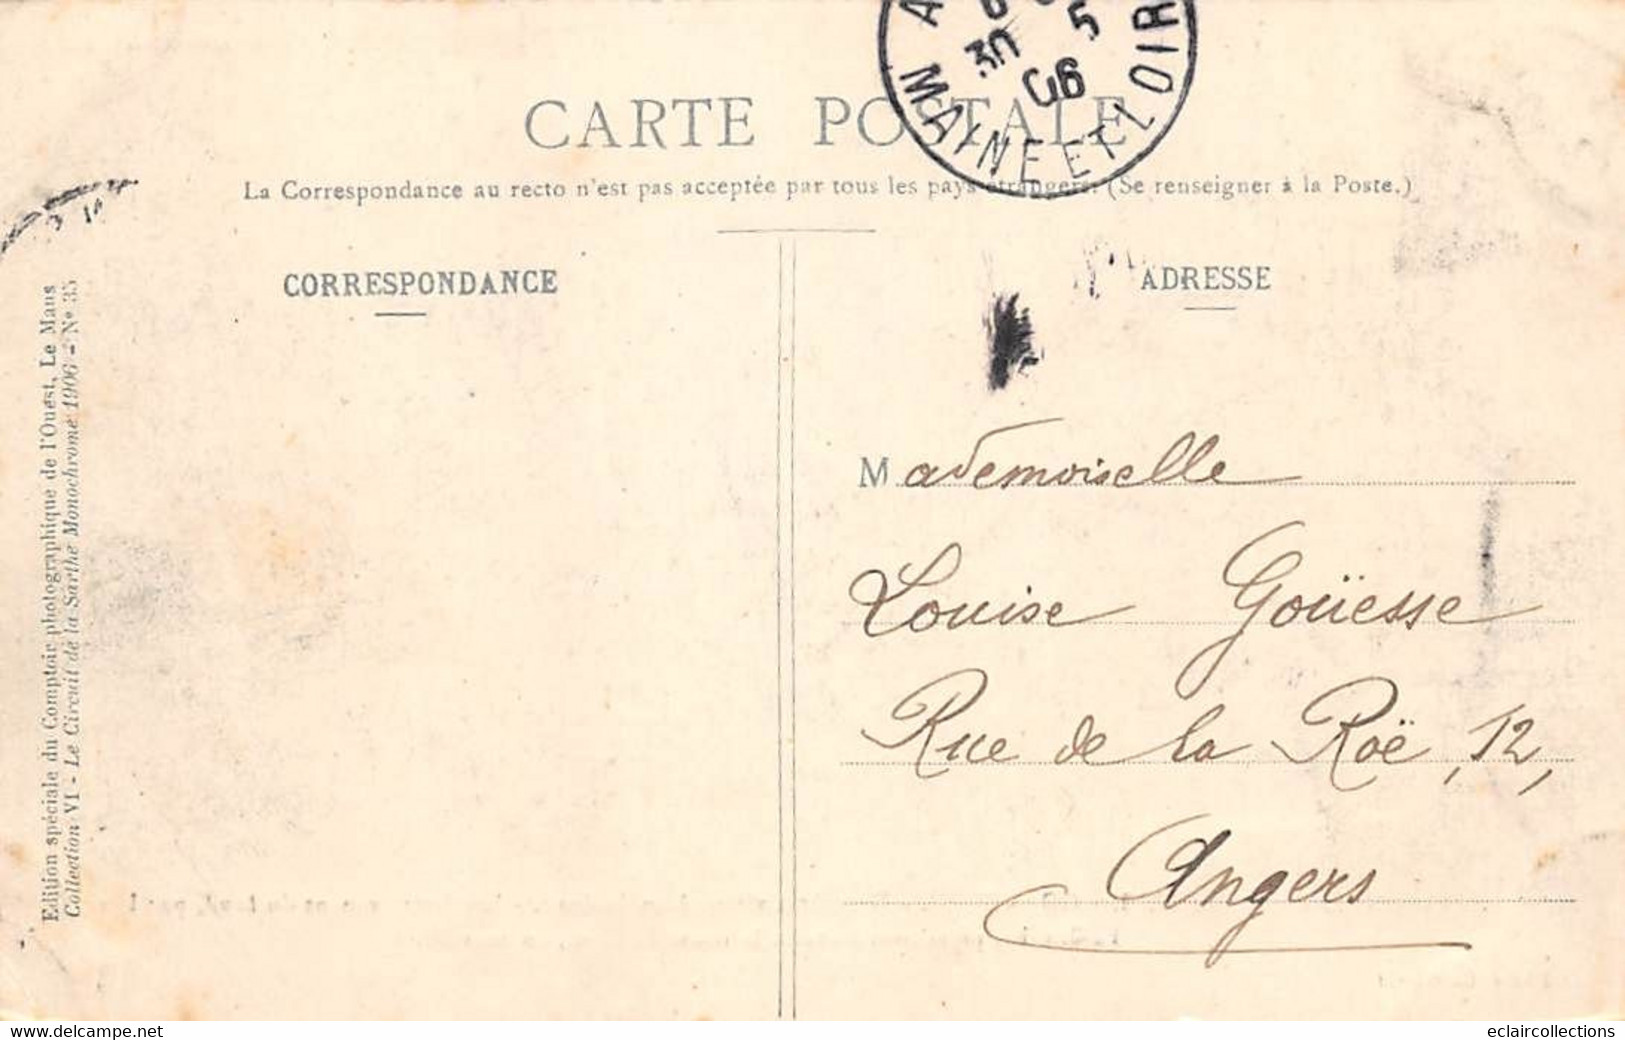 CARTE POSTALE
La Correspondance au recto n'est pas acceptée par tous les pays étrangers. (Se renseigner à la Poste.)
CORRESPONDANCE
ADRESSE
30 5
06
MAINE ET LOIR
Edition spéciale du Comptoir photographique de l'Ouest, Le Mans
Collection VI - Le Circuit de la Sarthe Monochrome 1906 - N° 35
Mademoiselle
Louise Goüesse
Rue de la Roë, 12,
Angers
www.delcampe.net
eclaircollections